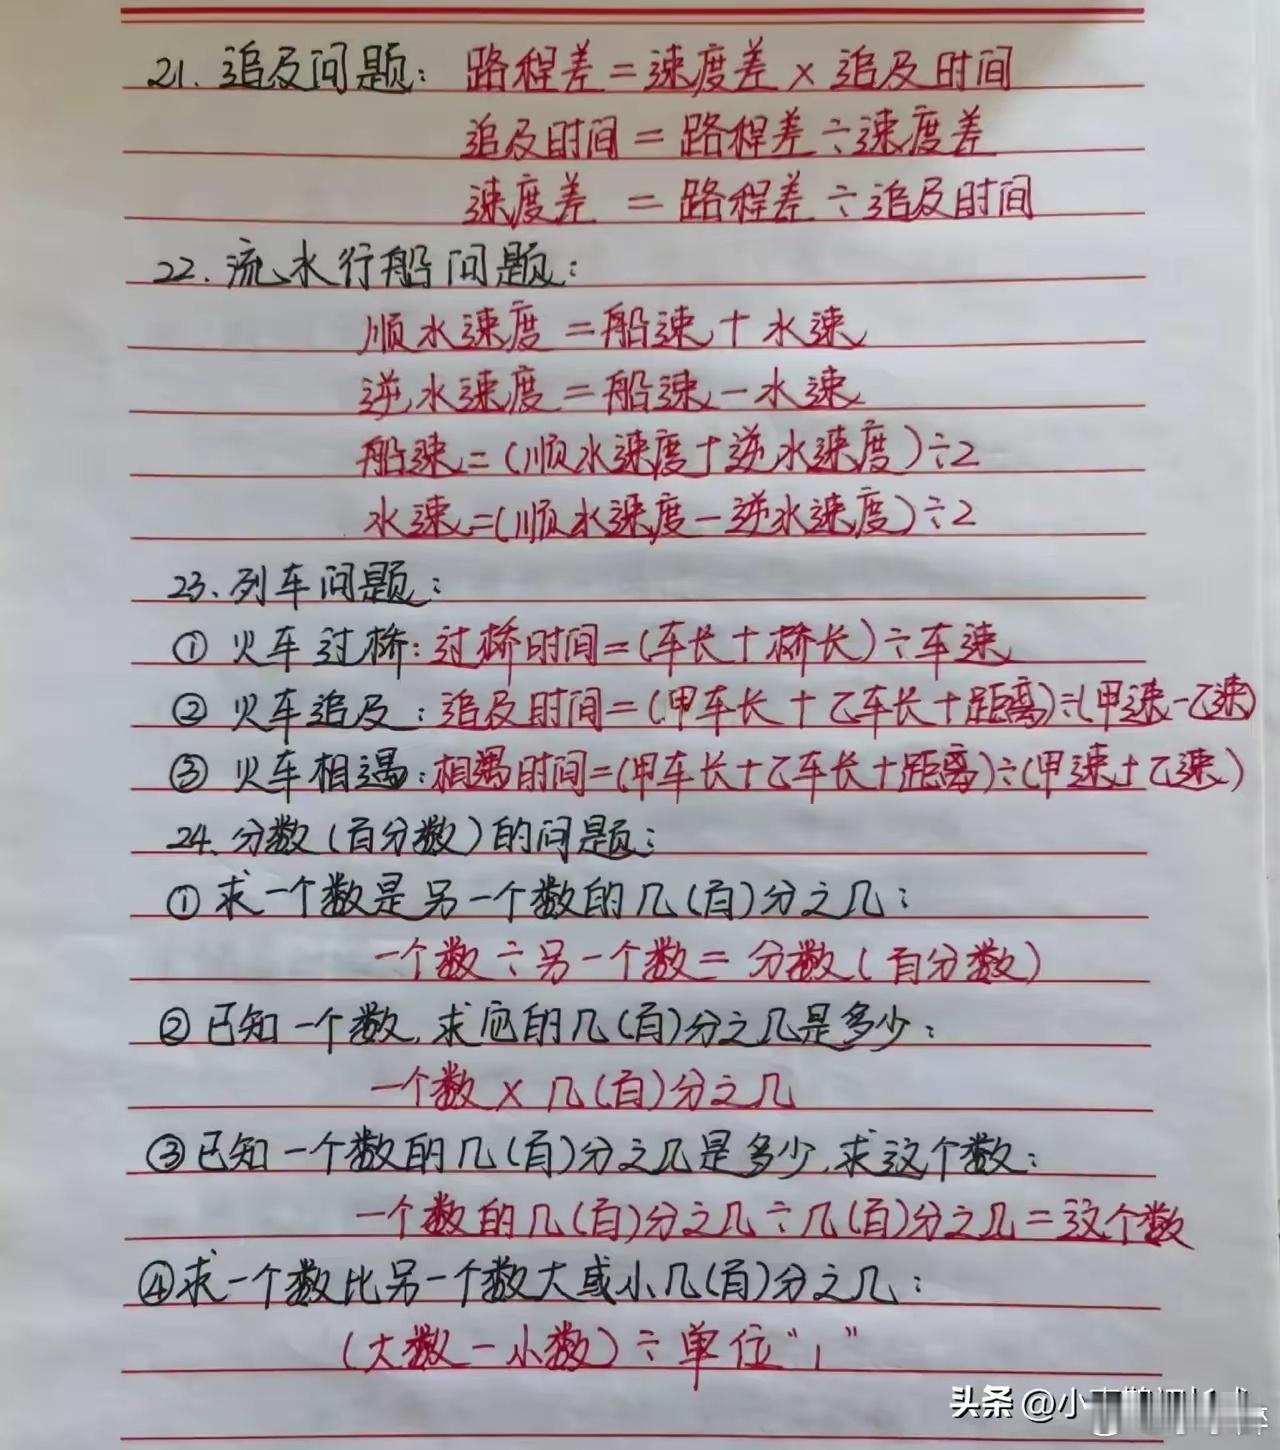 21. 追及问题: 路程差=速度差×追及时间
追及时间=路程差÷速度差
速度差=路程差÷追及时间
22. 流水行船问题:
顺水速度=船速+水速
逆水速度=船速-水速
船速=(顺水速度+逆水速度)÷2
水速=(顺水速度-逆水速度)÷2
23、列车问题:
① 火车过桥: 过桥时间=(车长+桥长)÷车速
② 火车追及: 追及时间=(甲车长+乙车长+距离)÷(甲速-乙速)
③ 火车相遇: 相遇时间=(甲车长+乙车长+距离)÷(甲速+乙速)
24、分数(百分数)的问题:
① 求一个数是另一个数的几(百)分之几:
一个数÷另一个数=分数(百分数)
② 已知一个数,求它的几(百)分之几是多少:
一个数×几(百)分之几
③ 已知一个数的几(百)分之几是多少,求这个数:
一个数的几(百)分之几÷几(百)分之几=这个数
④ 求一个数比另一个数大或小几(百)分之几:
(大数-小数)÷单位“1”
头条 @小